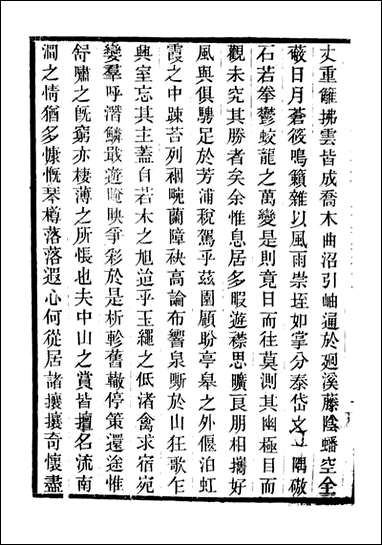 丈重籬拂雲皆成喬木曲沼引岫通於廻溪藤陰蟠空全
蔽日月蒼筱鳴籟雜以風雨崇垤如掌分泰岱之一隅礅
石若拳鬱蛟龍之萬變是則竟日而往莫測其幽極目而
觀未究其勝者矣余惟息居多暇遊襟思曠良朋相攜好
風與俱騁足於芳浦稅駕乎茲園顧盼亭皋之外偃泊虹
霞之中踈苔列裀畹蘭障袂高論布響泉嘶於山狂歌乍
興室忘其主蓋自若木之旭迨乎玉繩之低渚禽求宿宛
孌羣呼潛鱗戢遊晻映爭彩於是析軫舊轍停策還途惟
舒嘯之旣窮亦棲薄之所悵也夫中山之賞皆擅名流南
澗之情猶多慷慨琴樽落落遐心何從居諸攘攘奇懷盡